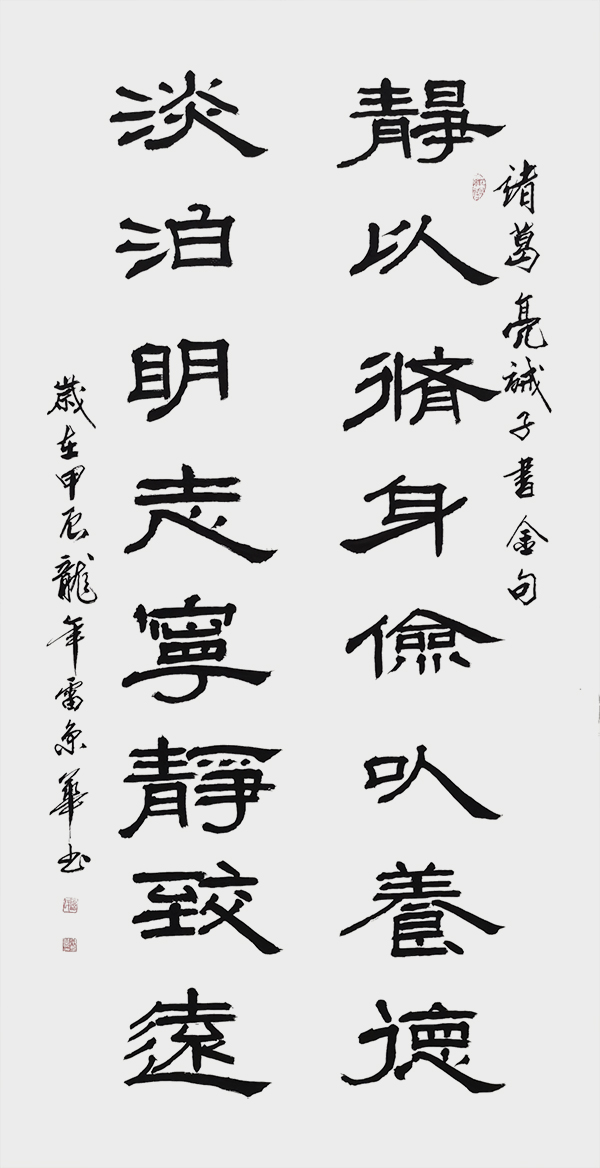 諸葛亮誡子書金句
靜以脩身儉以養德
淡泊明志寧靜致遠
歲在甲辰龍年雷京華书